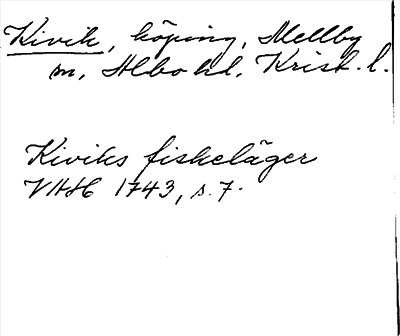 Kivik, köping, Mellby
m, Albo hd. Krist. l.
Kiviks fiskeläger
VHH 1743, s. 7.